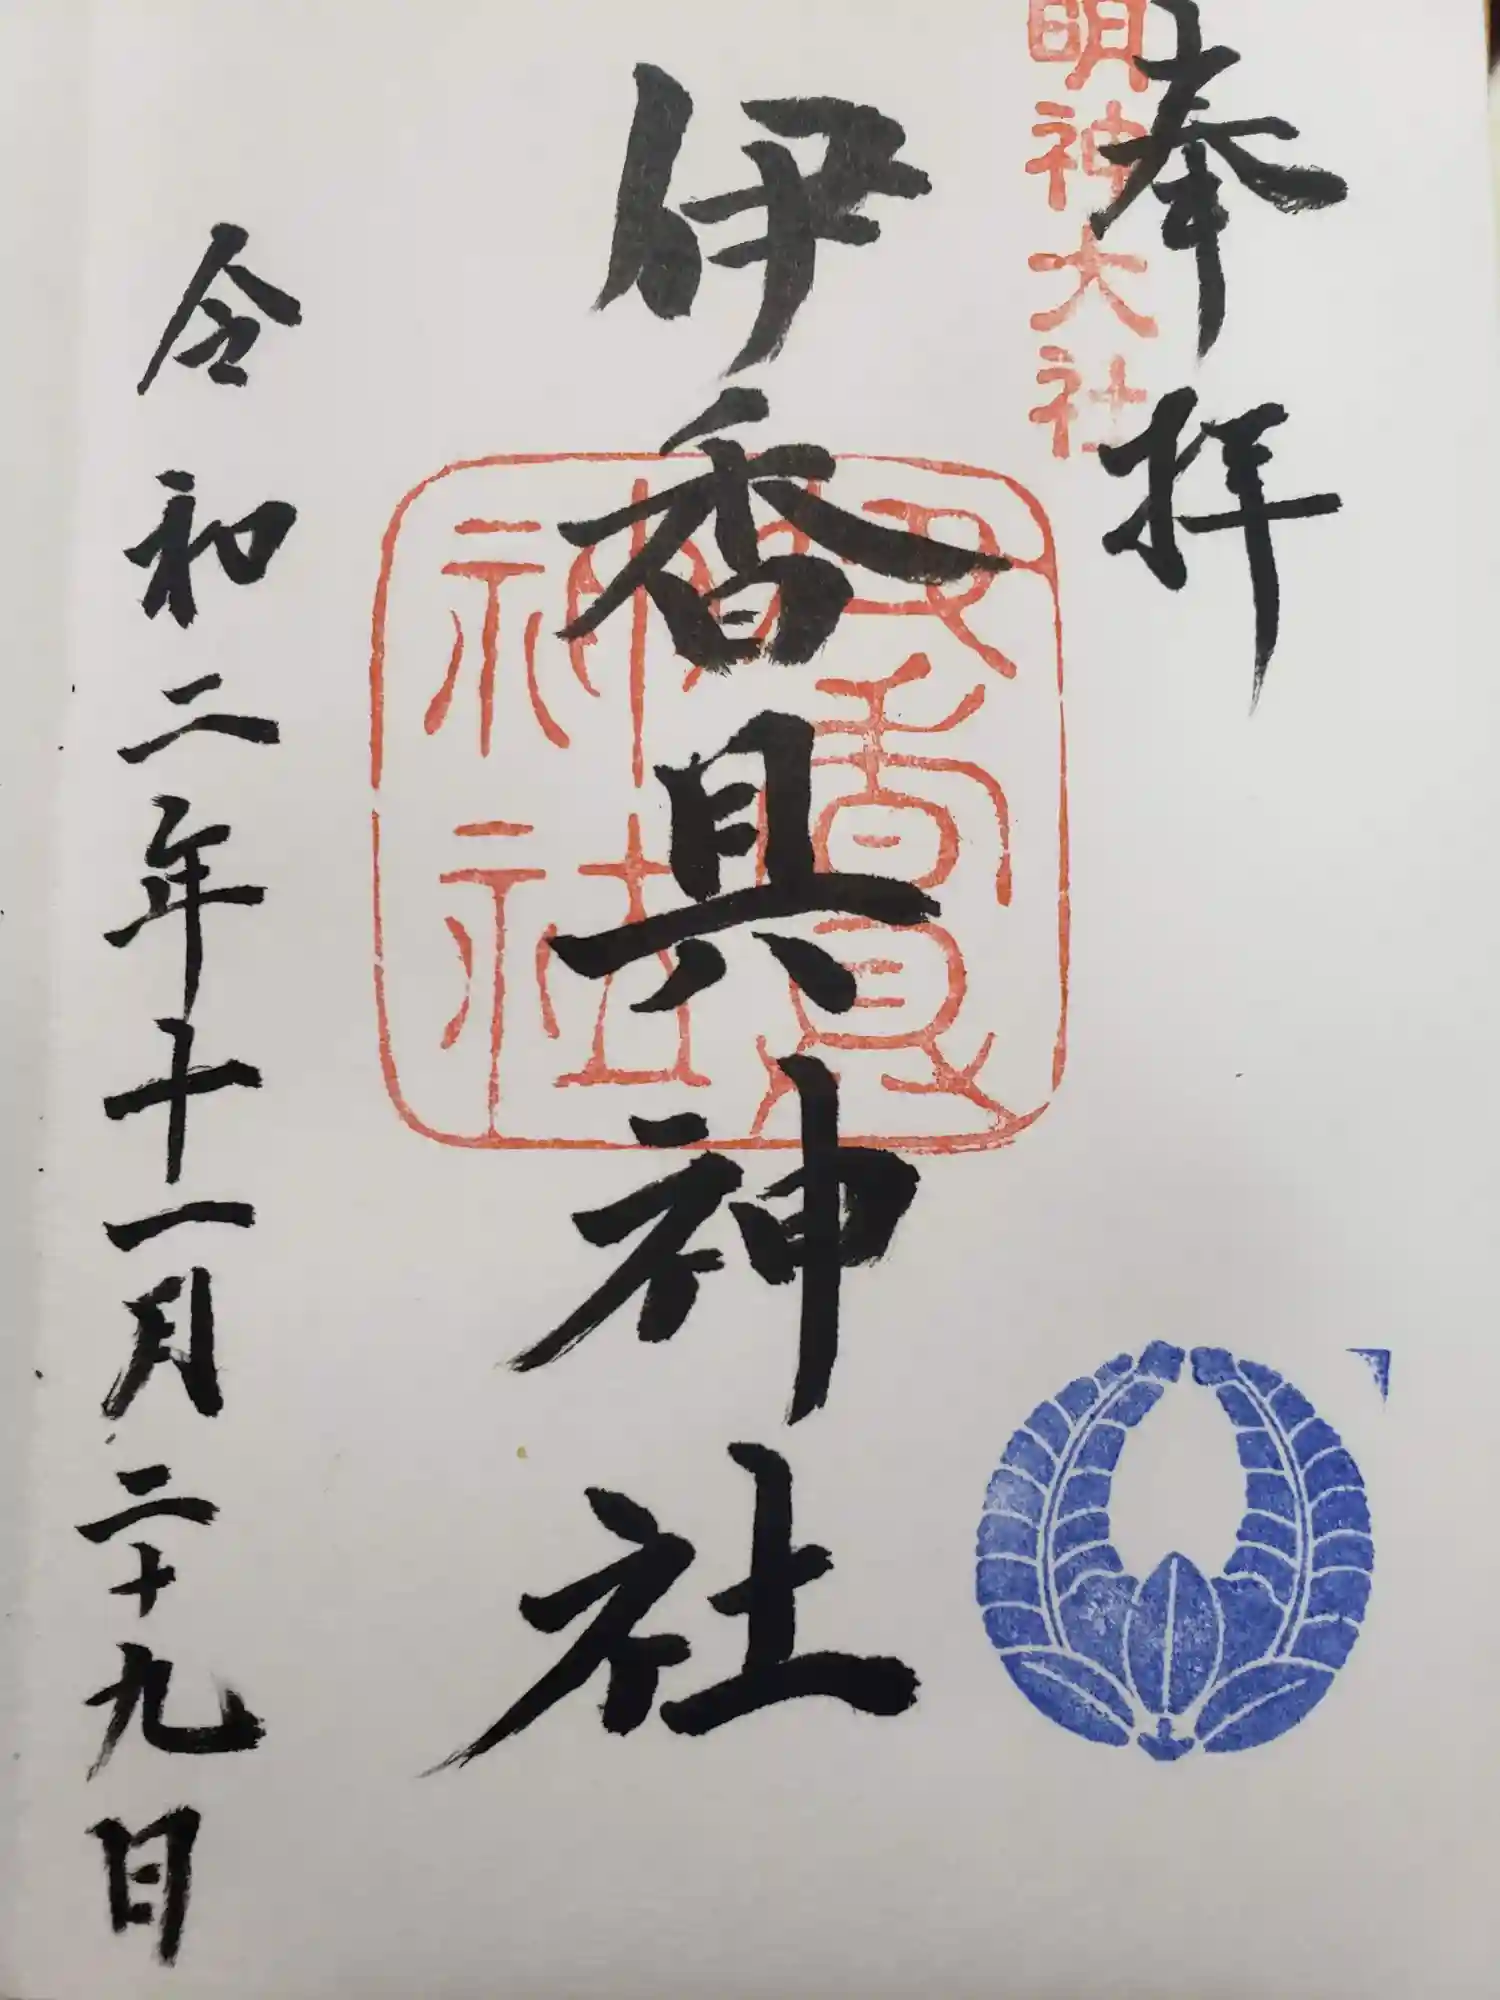 奉拝
明神大社
伊香具神社
伊香具神社
令和二年十一月二十九日